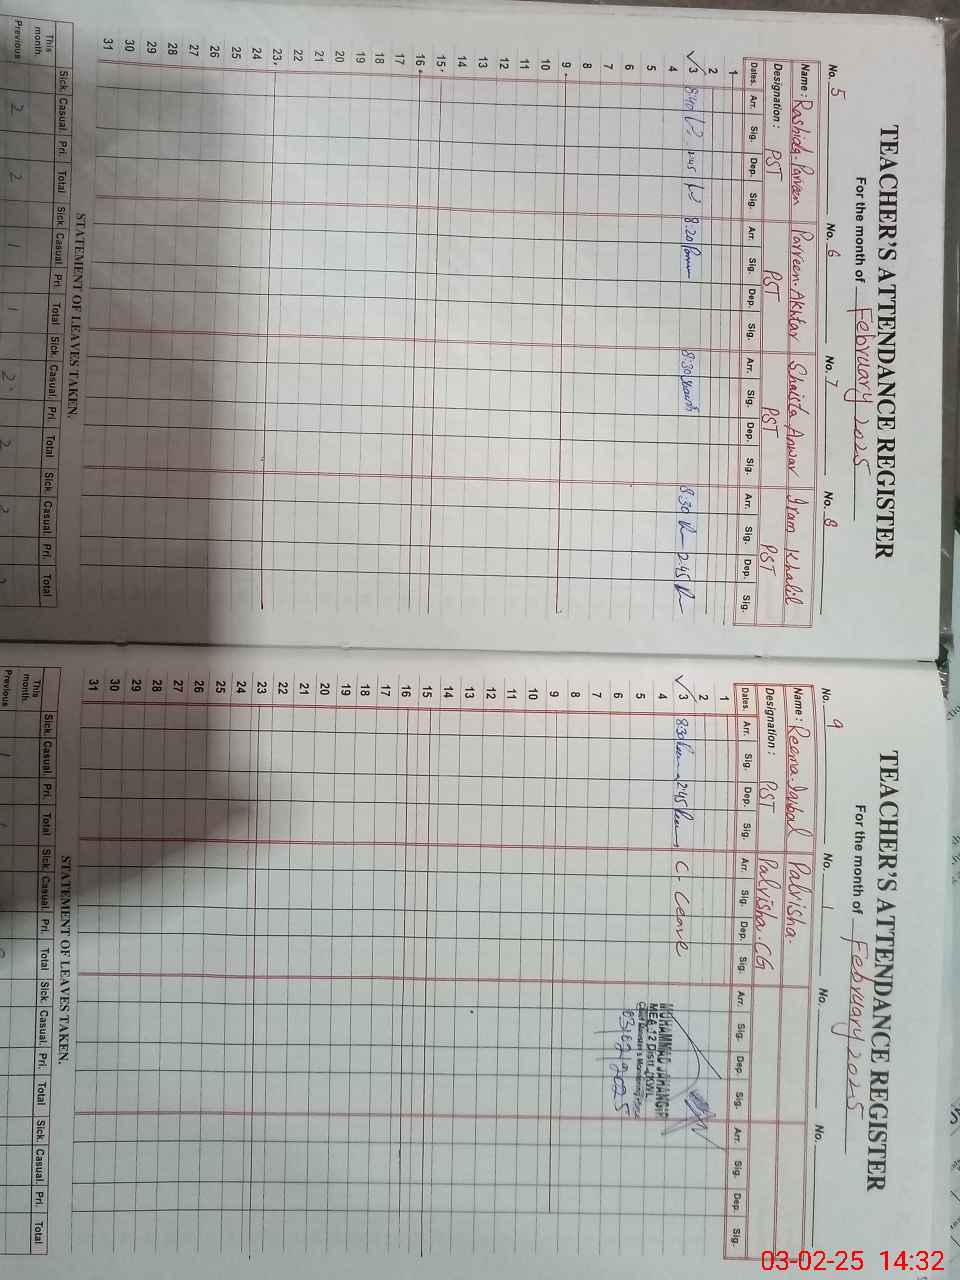 TEACHER'S ATTENDANCE REGISTER
For the month of February 2025
No. 5 No. 6 No. 7 No. 8
Name: Rashida Parveen Parveen Akhtar Shaista Anwar Iram Khalil
Designation: PST PST PST PST
Dates. Arr. Sig. Dep. Sig. Arr. Sig. Dep. Sig. Arr. Sig. Dep. Sig. Arr. Sig. Dep. Sig.
1
2
3 8:40 8:20 8:30 8:30 2:45
4
5
6
7
8
9
10
11
12
13
14
15
16
17
18
19
20
21
22
23
24
25
26
27
28
29
30
31
STATEMENT OF LEAVES TAKEN.
Sick. Casual. Pri. Total Sick. Casual. Pri. Total Sick. Casual. Pri. Total Sick. Casual. Pri. Total
This month.
Previous 2 2 1 1 2 2 2
TEACHER'S ATTENDANCE REGISTER
For the month of February 2025
No. 9 No. 1 No. No.
Name: Reema Iqbal Palvisha.
Designation: PST Palvisha. CG
Dates. Arr. Sig. Dep. Sig. Arr. Sig. Dep. Sig. Arr. Sig. Dep. Sig. Arr. Sig. Dep. Sig.
1
2
3 8:30 2:45 C. Leave
4
5
6
7
8
9
10
11
12
13
14
15
16
17
18
19
20
21
22
23
24
25
26
27
28
29
30
31
MUHAMMAD JAHANGIR
MEA 12 Distt. KWL
Chief Minister's Monitoring Force
03/02/2025
STATEMENT OF LEAVES TAKEN.
Sick. Casual. Pri. Total Sick. Casual. Pri. Total Sick. Casual. Pri. Total Sick. Casual. Pri. Total
This month.
Previous 1 1
03-02-25 14:32